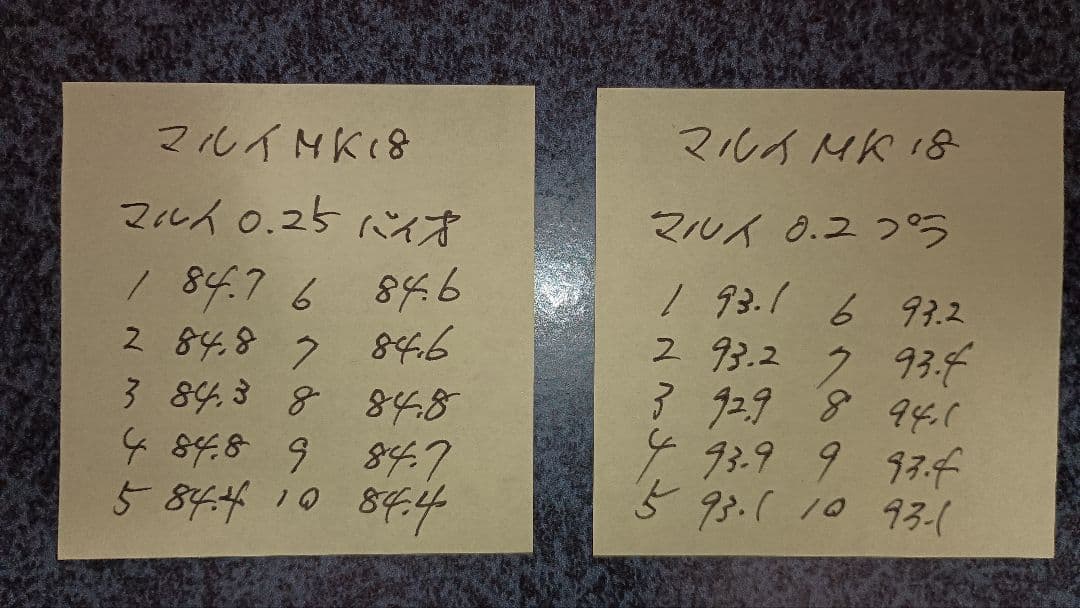 マルイ MK18
マルイ 0.25 バイオ
1 84.7 6 84.6
2 84.8 7 84.6
3 84.3 8 84.8
4 84.8 9 84.7
5 84.4 10 84.4
マルイ MK18
マルイ 0.2 プラ
1 93.1 6 93.2
2 93.2 7 93.4
3 92.9 8 94.1
4 93.9 9 93.4
5 93.1 10 93.1